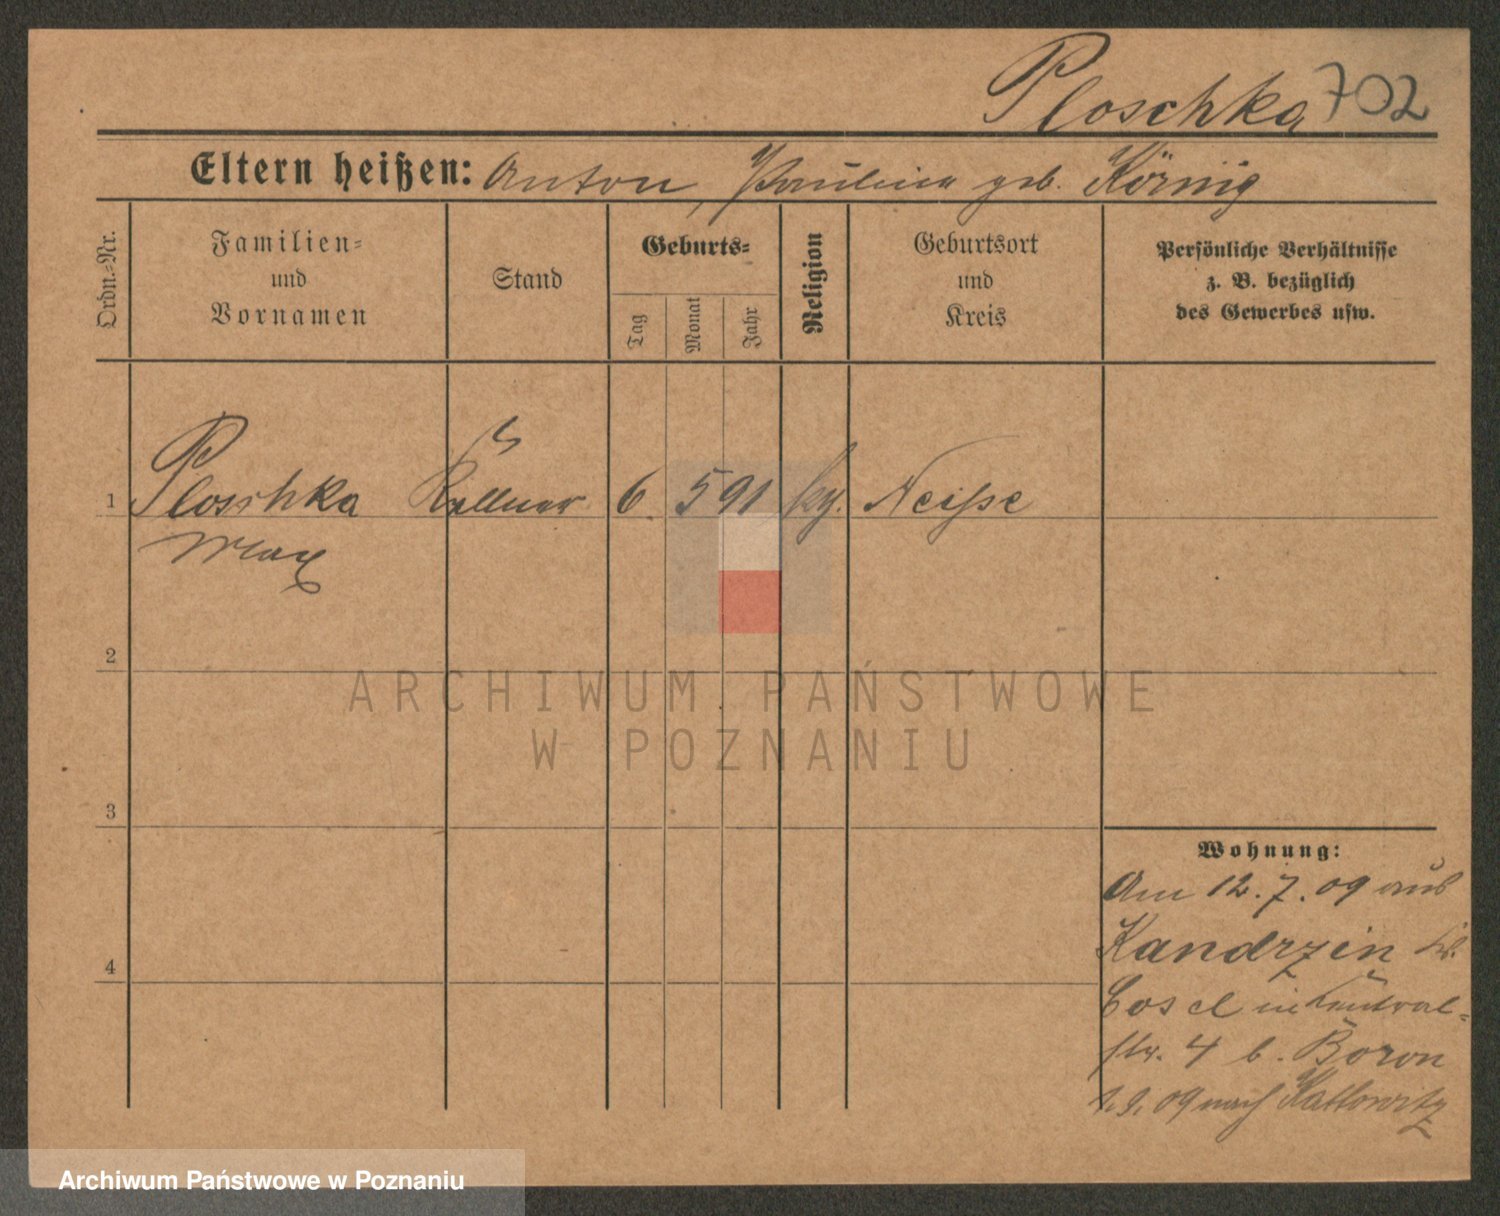 Ploschka 702
Eltern heißen: Anton, Paulina geb. Körnig
Ordn.-Nr.
Familien-
und
Vornamen
Stand
Geburts-
Tag
Monat
Jahr
Religion
Geburtsort
und
Kreis
Persönliche Verhältnisse
z. B. bezüglich
des Gewerbes usw.
1 Ploschka Kellner 6. 5 91 kg. Neisse
Max
2
ARCHIWUM PAŃSTWOWE
W POZNANIU
3
Wohnung:
Am 12.7.09 aus
Kandrzin Kr.
4
Cosel in
str. 4 b. Boron
09 nach Kattowitz
Archiwum Państwowe w Poznaniu